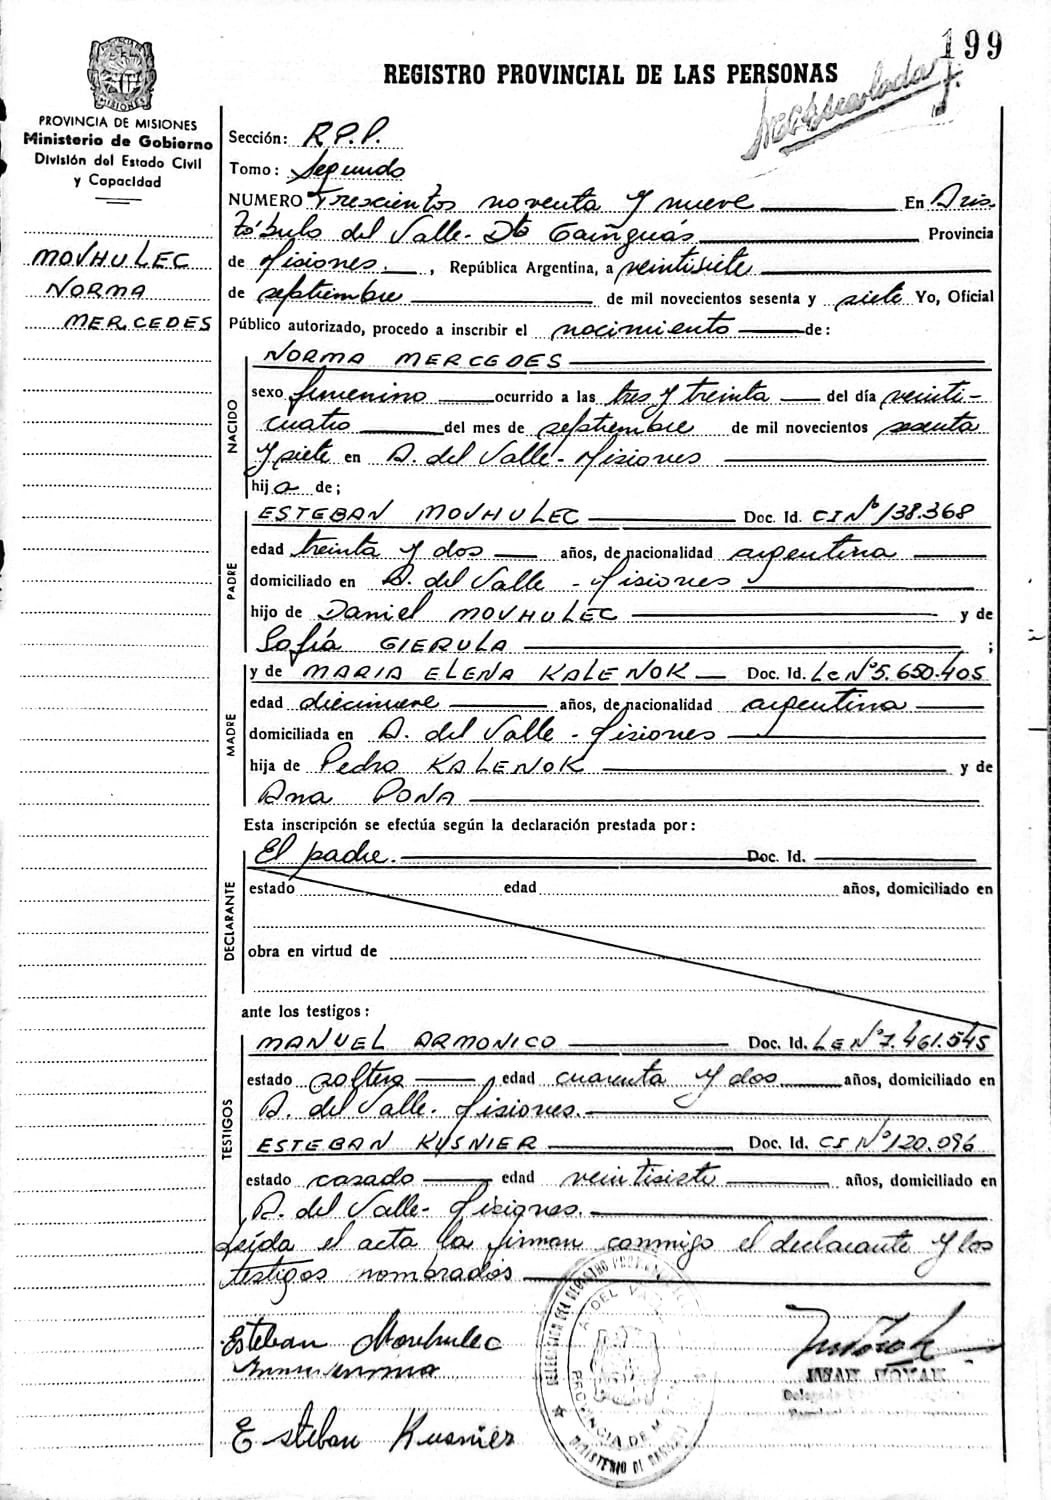 199
REGISTRO PROVINCIAL DE LAS PERSONAS
MISIONES
PROVINCIA DE MISIONES
Ministerio de Gobierno
División del Estado Civil
y Capacidad
MOVHULEC
NORMA
MERCEDES
Sección: R.P.P.
Tomo: Segundo
NUMERO Trescientos noventa y nueve En Aris
tóbulo del Valle - Dto Cainguás Provincia
de Misiones. , República Argentina, a veintisiete
de septiembre de mil novecientos sesenta y siete Yo, Oficial
Público autorizado, procedo a inscribir el nacimiento de:
NACIDO
NORMA MERCEDES
sexo femenino ocurrido a las tres y treinta del día veinti-
cuatro del mes de septiembre de mil novecientos sesenta
y siete en A. del Valle - Misiones
hija de;
PADRE
ESTEBAN MOVHULEC Doc. Id. CI Nº 138.368
edad treinta y dos años, de nacionalidad argentina
domiciliado en A. del Valle - Misiones
hijo de Daniel MOVHULEC y de
Sofía GIERULA ;
MADRE
y de MARIA ELENA KALENOK Doc. Id. LC Nº 5.650.405
edad diecinueve años, de nacionalidad argentina
domiciliada en A. del Valle - Misiones
hija de Pedro KALENOK y de
Ana PONA
Esta inscripción se efectúa según la declaración prestada por:
DECLARANTE
El padre. Doc. Id.
estado edad años, domiciliado en
obra en virtud de
ante los testigos:
TESTIGOS
MANUEL ARMONICO Doc. Id. LE Nº 7.461.545
estado soltero edad cuarenta y dos años, domiciliado en
A. del Valle - Misiones.
ESTEBAN KUSNIER Doc. Id. CI Nº 120.096
estado casado edad veintisiete años, domiciliado en
A. del Valle - Misiones.
Leída el acta la firman conmigo el declarante y los
testigos nombrados
Esteban Movhulec
Esteban Kusnier
DELEGACION DEL REGISTRO PROVINCIAL
A. DEL VALLE
PROVINCIA DE MISIONES
MINISTERIO DE GOBIERNO
JUAN NOVAK